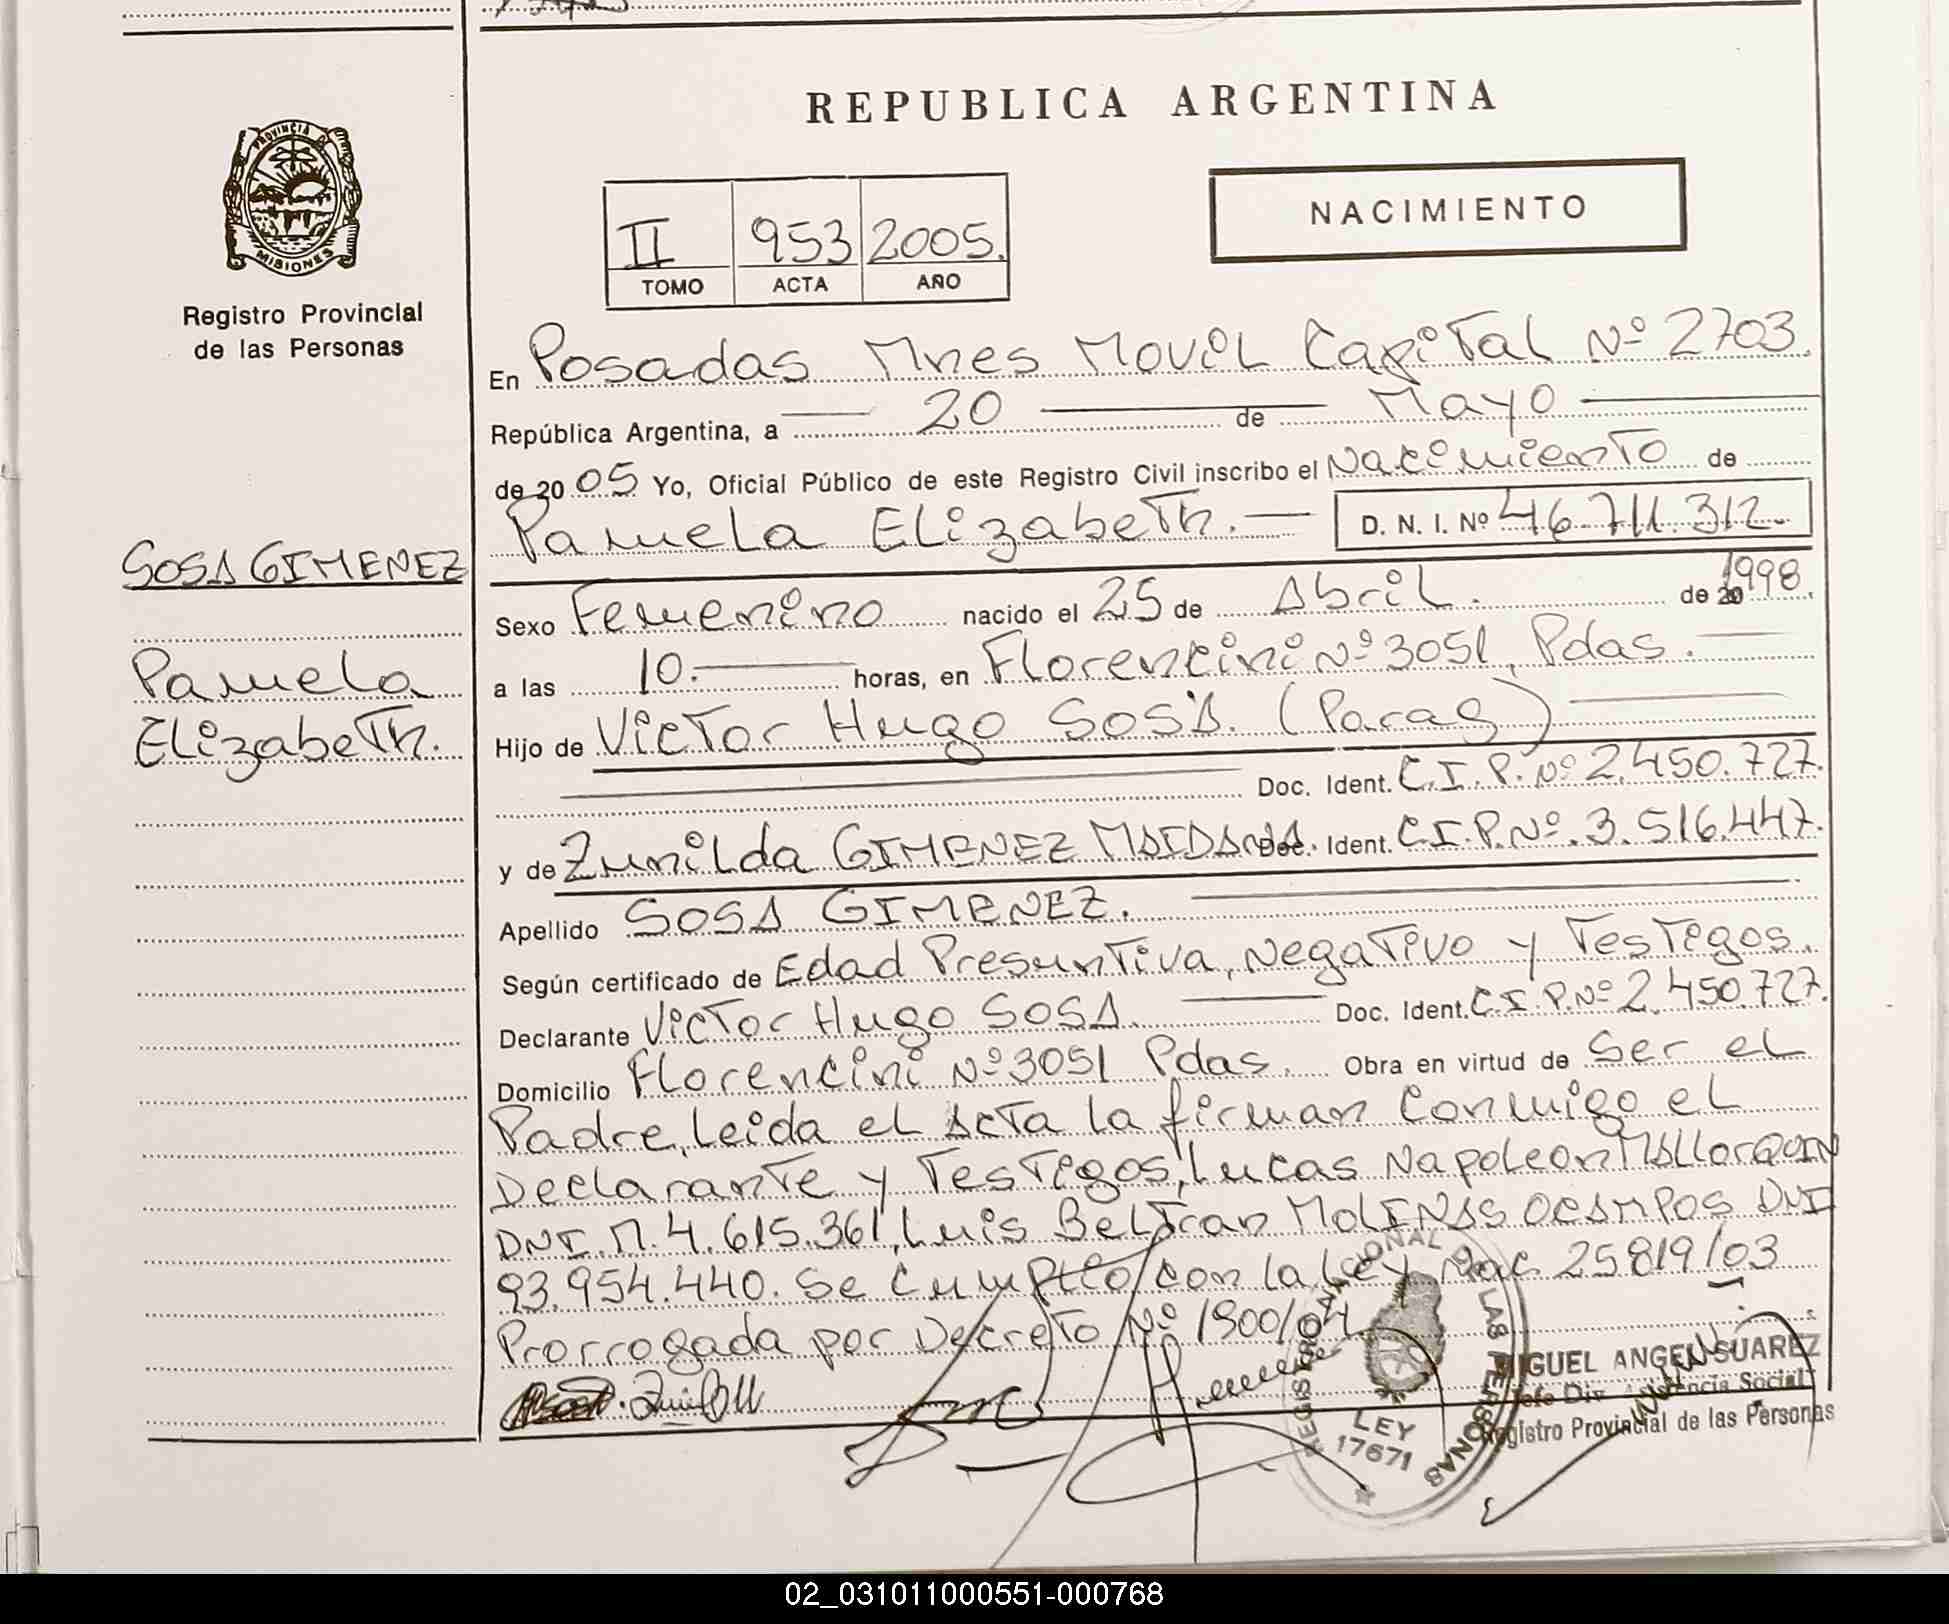 REPUBLICA ARGENTINA
PROVINCIA DE
MISIONES
Registro Provincial
de las Personas
NACIMIENTO
II 953 2005.
TOMO ACTA AÑO
En Posadas Mnes Movil Capital Nº 2703.
República Argentina, a 20 de Mayo
de 20 05 Yo, Oficial Público de este Registro Civil inscribo el Nacimiento de
Pamela Elizabeth. D. N. I. Nº 46.711.312.
SOSA GIMENEZ
Pamela
Elizabeth.
Sexo Femenino nacido el 25 de Abril. de 20 1998
a las 10. horas, en Florencini Nº 3051, Pdas.
Hijo de Victor Hugo SOSA. (Parag)
Doc. Ident. C.I.P. Nº 2.450.727.
y de Zunilda GIMENEZ MAIDANA Doc. Ident. C.I.P. Nº. 3.516.447.
Apellido SOSA GIMENEZ.
Según certificado de Edad Presuntiva, Negativo y Testigos.
Declarante Victor Hugo SOSA. Doc. Ident. C.I.P. Nº 2.450.727.
Domicilio Florencini Nº 3051 Pdas. Obra en virtud de Ser el
Padre, Leida el Acta la firman conmigo el
Declarante y Testigos, Lucas Napoleon MALLORQUIN
DNI. M. 4.615.361, Luis Beltran MOLINAS OCAMPOS DNI
93.954.440. Se Cumplio con la Ley Nac 25819/03
Prorrogada por Decreto Nº 1900/04
REGISTRO NACIONAL DE LAS PERSONAS
LEY
17671
MIGUEL ANGEL SUAREZ
Jefe Div. Asistencia Social
Registro Provincial de las Personas
02_031011000551-000768